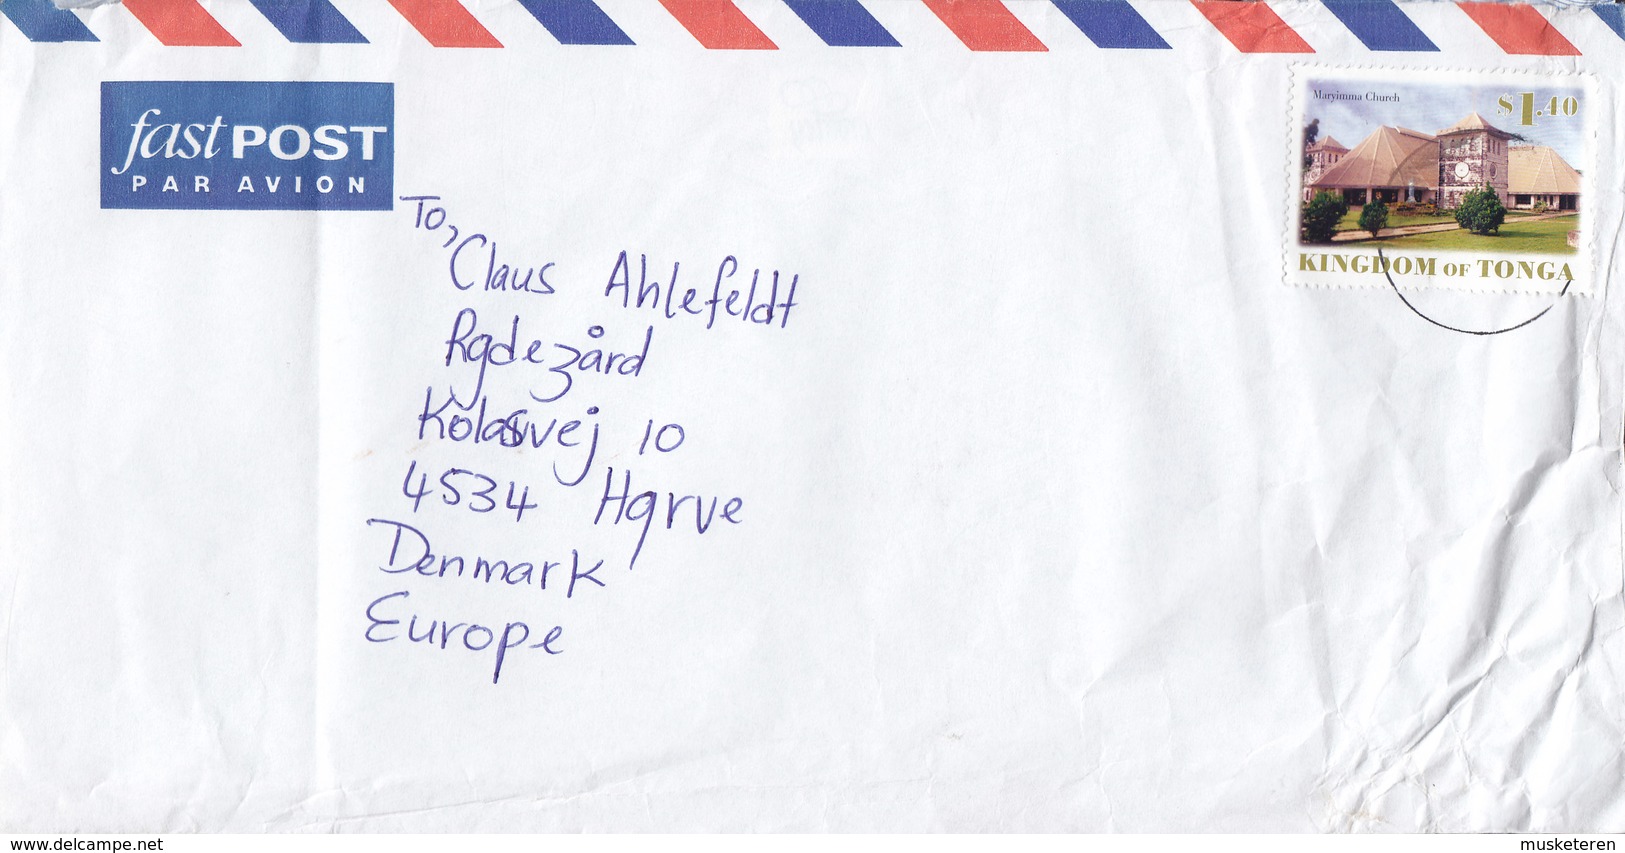 fast POST
PAR AVION
Maryimma Church
$1.40
KINGDOM OF TONGA
To,
Claus Ahlefeldt
Rgdezård
Kolasvej 10
4534 Hqrve
Denmark
Europe
www.delcampe.net
musketeren